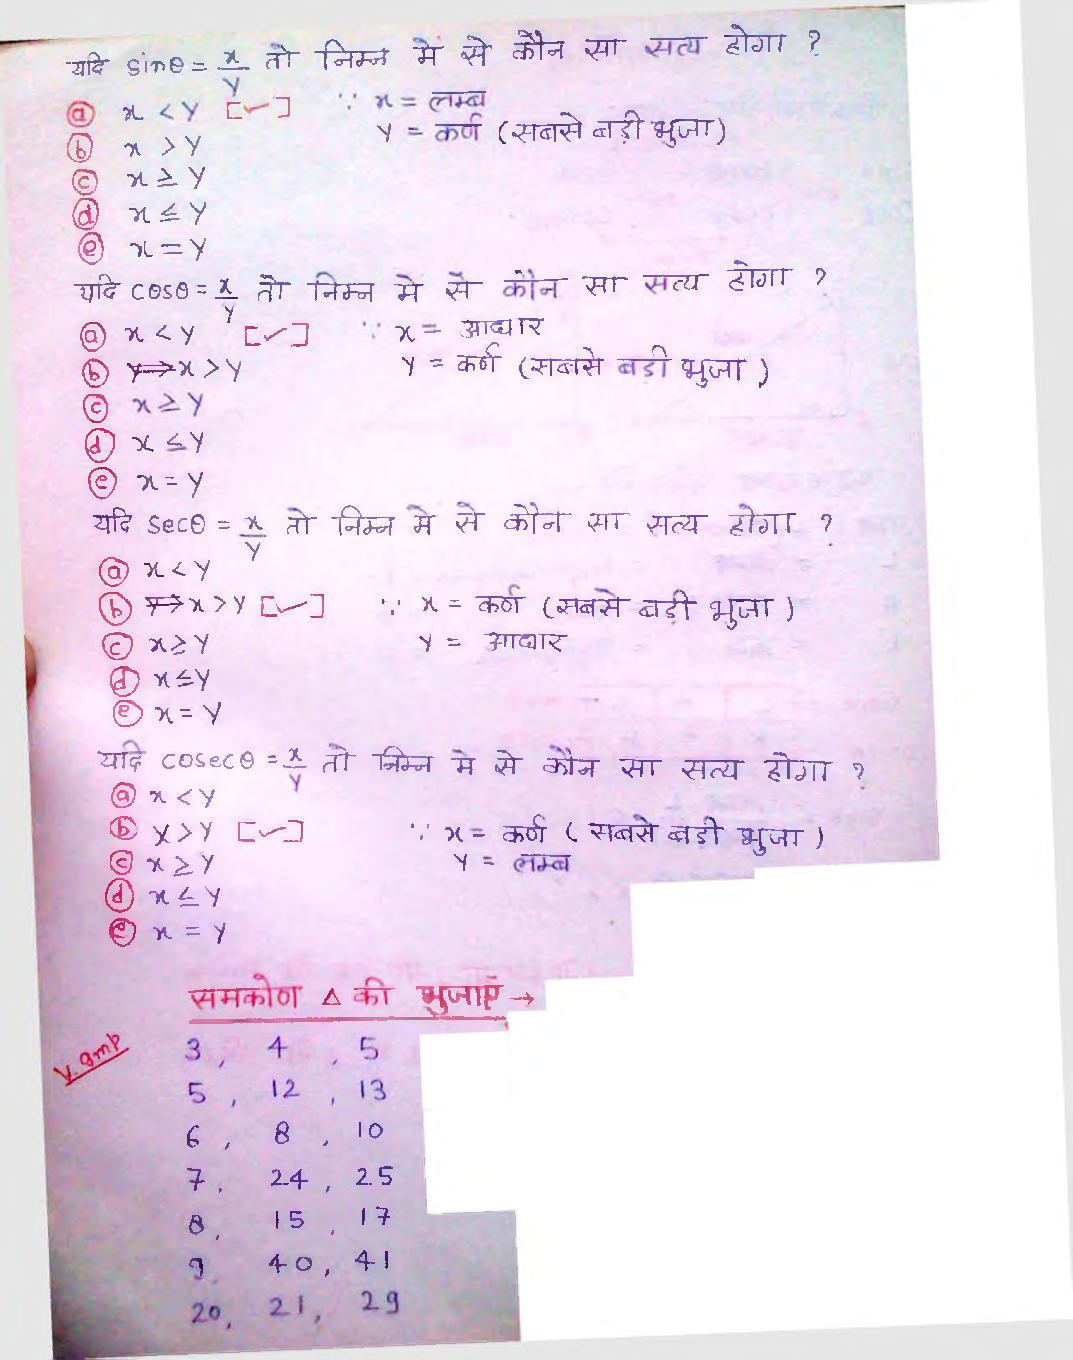 यदि sinθ = x/y तो निम्न में से कौन सा सत्य होगा ?
(a) x < y [✓] ∵ x = लम्ब
y = कर्ण (सबसे बड़ी भुजा)
(b) x > y
(c) x ≥ y
(d) x ≤ y
(e) x = y
यदि cosθ = x/y तो निम्न मे से कौन सा सत्य होगा ?
(a) x < y [✓] ∵ x = आधार
y = कर्ण (सबसे बडी भुजा)
(b) x > y
(c) x ≥ y
(d) x ≤ y
(e) x = y
यदि secθ = x/y तो निम्न मे से कौन सा सत्य होगा ?
(a) x < y
(b) x > y [✓] ∵ x = कर्ण (सबसे बड़ी भुजा)
(c) x ≥ y y = आधार
(d) x ≤ y
(e) x = y
यदि cosecθ = x/y तो निम्न मे से कौन सा सत्य होगा ?
(a) x < y
(b) x > y [✓] ∵ x = कर्ण (सबसे बडी भुजा)
(c) x ≥ y y = लम्ब
(d) x ≤ y
(e) x = y
समकोण △ की भुजाएं →
V. Imp
3, 4, 5
5, 12, 13
6, 8, 10
7, 24, 25
8, 15, 17
9, 40, 41
20, 21, 29